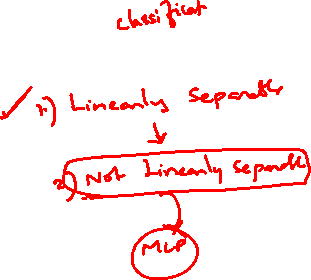 classificat
1) Linearly Separable
2) Not Linearly Separable
MLP